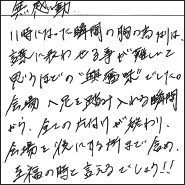 無感動。
11時になった瞬間の胸の高なりは、
言葉に表わせる事が難しくて
思うほどの"興味"でした。
会場へ足を踏み入れる瞬間
から、全ての片付けが終わり、
会場を後にする所まで含め、
至福の時と言えるでしょう!!